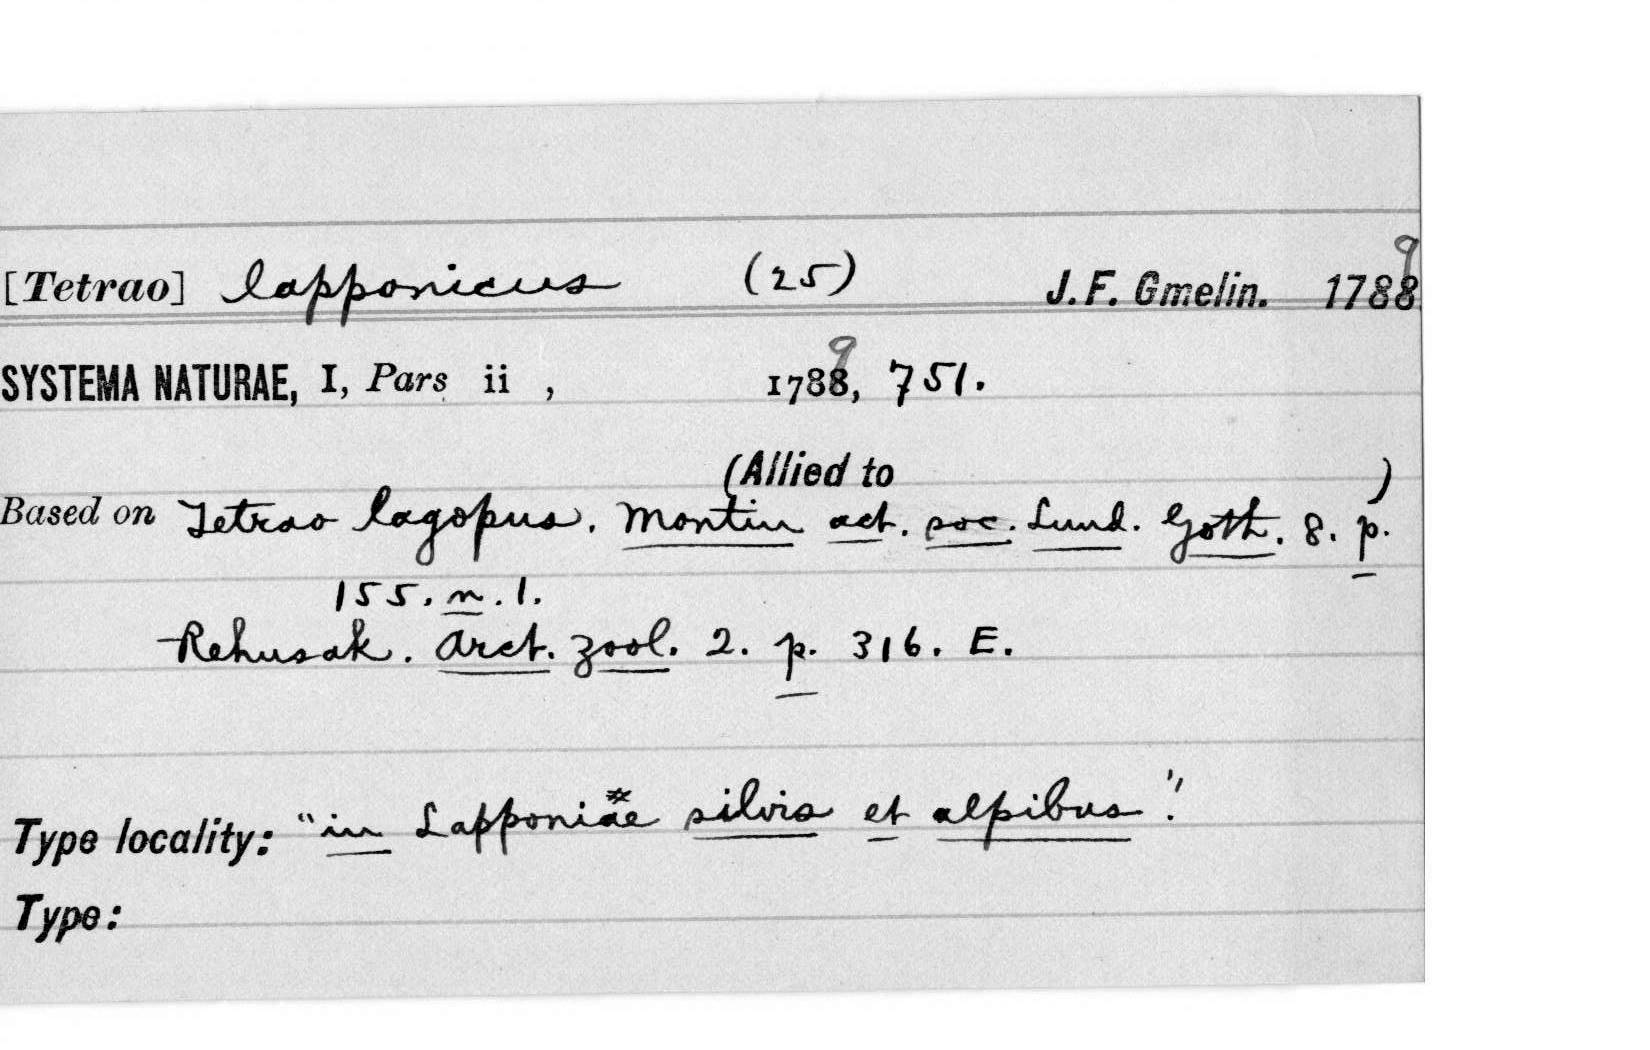 9
[Tetrao] lapponicus (25) J. F. Gmelin. 1788
9
SYSTEMA NATURAE, I, Pars ii , 1788, 751.
(Allied to )
Based on Tetrao lagopus. Montin act. soc. Lund. Goth. 8. p.
155. n. 1.
Rehusak. Arct. zool. 2. p. 316. E.
Type locality: "in Lapponiae silvis et alpibus."
Type: